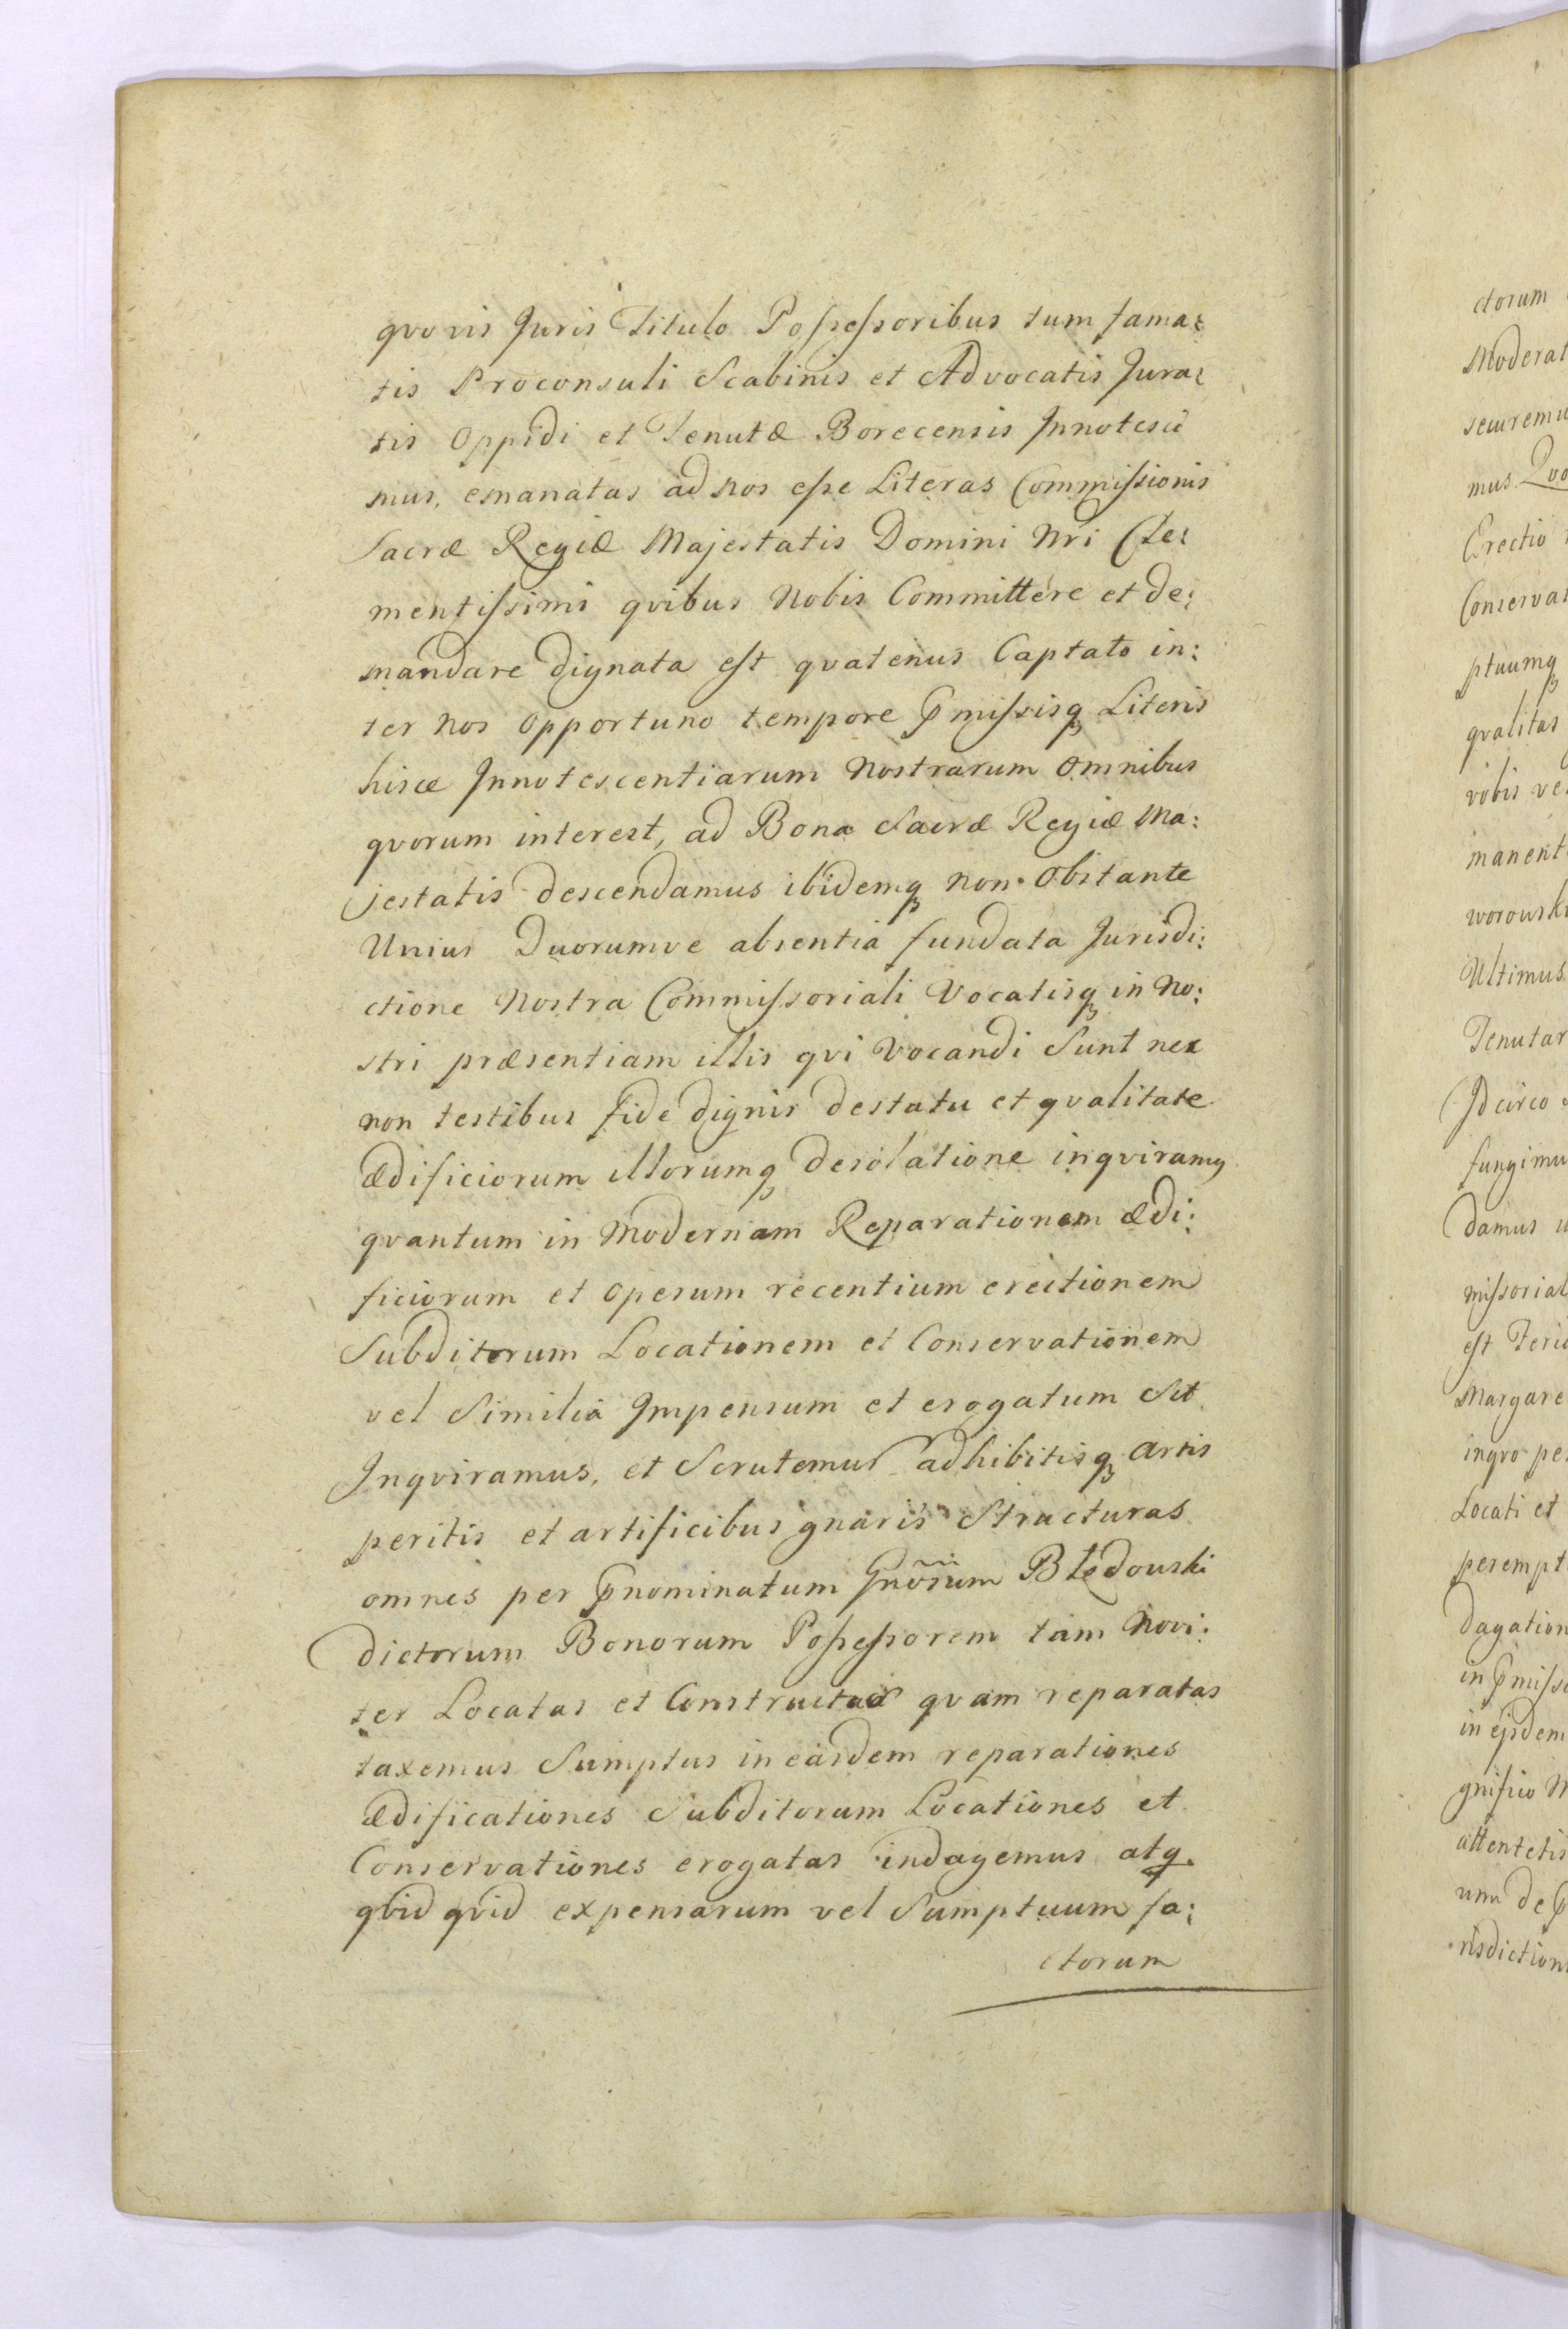 qvovis Juris Titulo Possessoribus tum fama:
tis Proconsuli Scabinis et Advocatis Jura:
tis Oppidi et Tenutæ Borecensis Innotesci
mus, emanatas ad nos esse Literas Commissionis
Sacræ Regiæ Majestatis Domini Nri Cle:
mentissimi qvibus Nobis Committere et de:
mandare dignata est qvatenus Captato in:
ter nos opportuno tempore Pmissisq Literis
hisce Innotescentiarum Nostrarum Omnibus
qvorum interest, ad Bona Sacræ Regiæ Ma:
jestatis descendamus ibidemq non Obstante
Unius Duorumve absentia fundata Jurisdi:
ctione Nostra Commissoriali Vocatisq in No:
stri præsentiam illis qvi Vocandi Sunt nec
non testibus fide dignis destatu et qvalitate
ædificiorum illorumq desolatione inqviramq
qvantum in Modernam Reparationem ædi:
ficiorum et operum recentium erectionem
Subditorum Locationem et Conservationem
vel Similia Impensum et erogatum Sit
Inqviramus, et Scrutemur adhibitisq artis
peritis et artificibus gnaris Structuras
omnes per Pnominatum Gnorum Błędowski
dictorum Bonorum Possessorem tam Novi:
ter Locatas et Constructas qvam reparatas
taxemus Sumptus in easdem reparationes
ædificationes Subditorum Locationes et
Conservationes erogatas indagemus atq.
qvid qvid expensarum vel Sumptuum fa:
ctorum
ctorum
Moderat
mus Quo
Erectio
Conservat
ptuumq
qvalitas
vobis ve
manent
worowski
Ultimus
Tenutar
Idcirco
fungimu
damus
missorial
est Feri
Margare
ingro pe
Locati et
perempt
dagation
in Pmiss
in ejsdem
gnifico M
attentetis
unu de P
risdiction